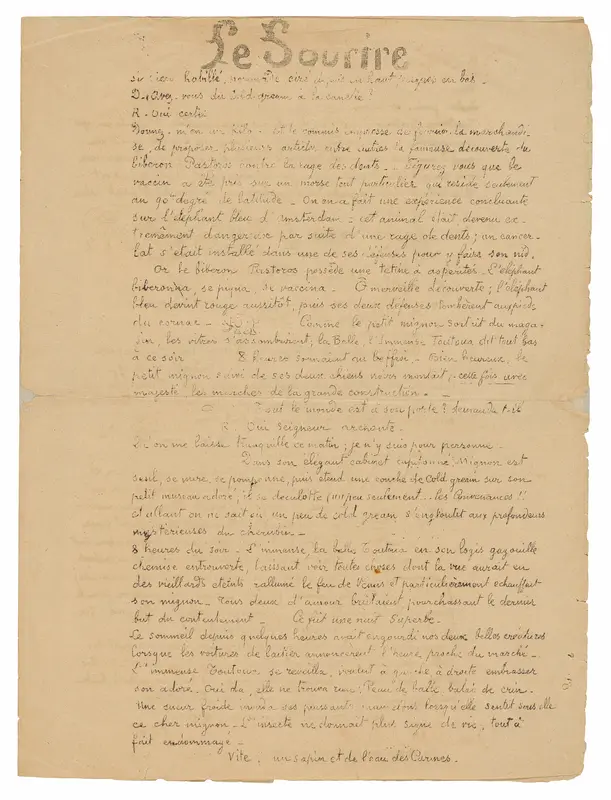 Le Sourire
habillé,
D. Avez vous du Cold-gream à la
R. Oui certes
Donnez m'en un kilo. Et le commis de fournir la marchandi-
se, de proposer plusieurs articles entre autres la fameuse découverte du
biberon Pastoros contre la rage des dents. Figurez vous que le
vaccin a été pris sur un morse tout particulier qui réside seulement
au 90e degré de latitude. On en a fait une expérience concluante
sur l'éléphant bleu d'Amsterdam: cet animal était devenu ex-
trêmement dangereux par suite d'une rage de dents; un cancer-
lat s'était installé dans une de ses défenses pour y faire son nid.
Or le biberon Pastoros possède une tétine à aspérités. L'éléphant
biberonna, se piqua, se vaccina. O merveille découverte; l'éléphant
bleu devint rouge aussitôt, puis ses deux défenses tombèrent aux pieds
du cornac. Comme le petit mignon sortait du maga-
sin, les vitres s'assombrirent; la Belle, l'Immense Toutoua dit tout bas
à ce soir 8 heures sonnaient au beffroi. Bien heureux, le
petit mignon suivi de ses deux chiens noirs montait, cette fois avec
majesté les marches de la grande construction.
Tout le monde est à son poste? demanda t-il
R. Oui Seigneur
Qu'on me laisse tranquille ce matin; je n'y suis pour personne.
Dans son élégant cabinet capitonné, Mignon est
seul, se mire, se pomponne, puis étend une couche de Cold gream sur son
petit museau adoré; il se déculotte un peu seulement... les Convenances!!
et allant on ne sait où un peu de cold gream s'engloutit aux profondeurs
mystérieuses du chérubin.
8 heures du soir. L'immense, la belle Toutoua en son logis gazouille
chemise entrouverte, laissant voir toutes choses dont la vue aurait en
des vieillards éteints rallumé le feu de Vénus et particulièrement échauffait
son mignon. Tous deux d'amour brûlaient pourchassant le dernier
but du contentement. Ce fut une nuit superbe.
Le sommeil depuis quelques heures avait engourdi nos deux belles créatures
lorsque les voitures de laitier annoncèrent l'heure proche du marché.
L'immense Toutoua se réveilla, voulut à gauche à droite embrasser
son adoré. Oui da, elle ne trouva rien; Peau de balle, balai de crin.
Une sueur froide inonda ses puissants lorsqu'elle sentit sous elle
ce cher mignon. L'insecte ne donnait plus signe de vie, tout à
fait endommagé.
Vite, un sapin et de l'eau des Carmes.